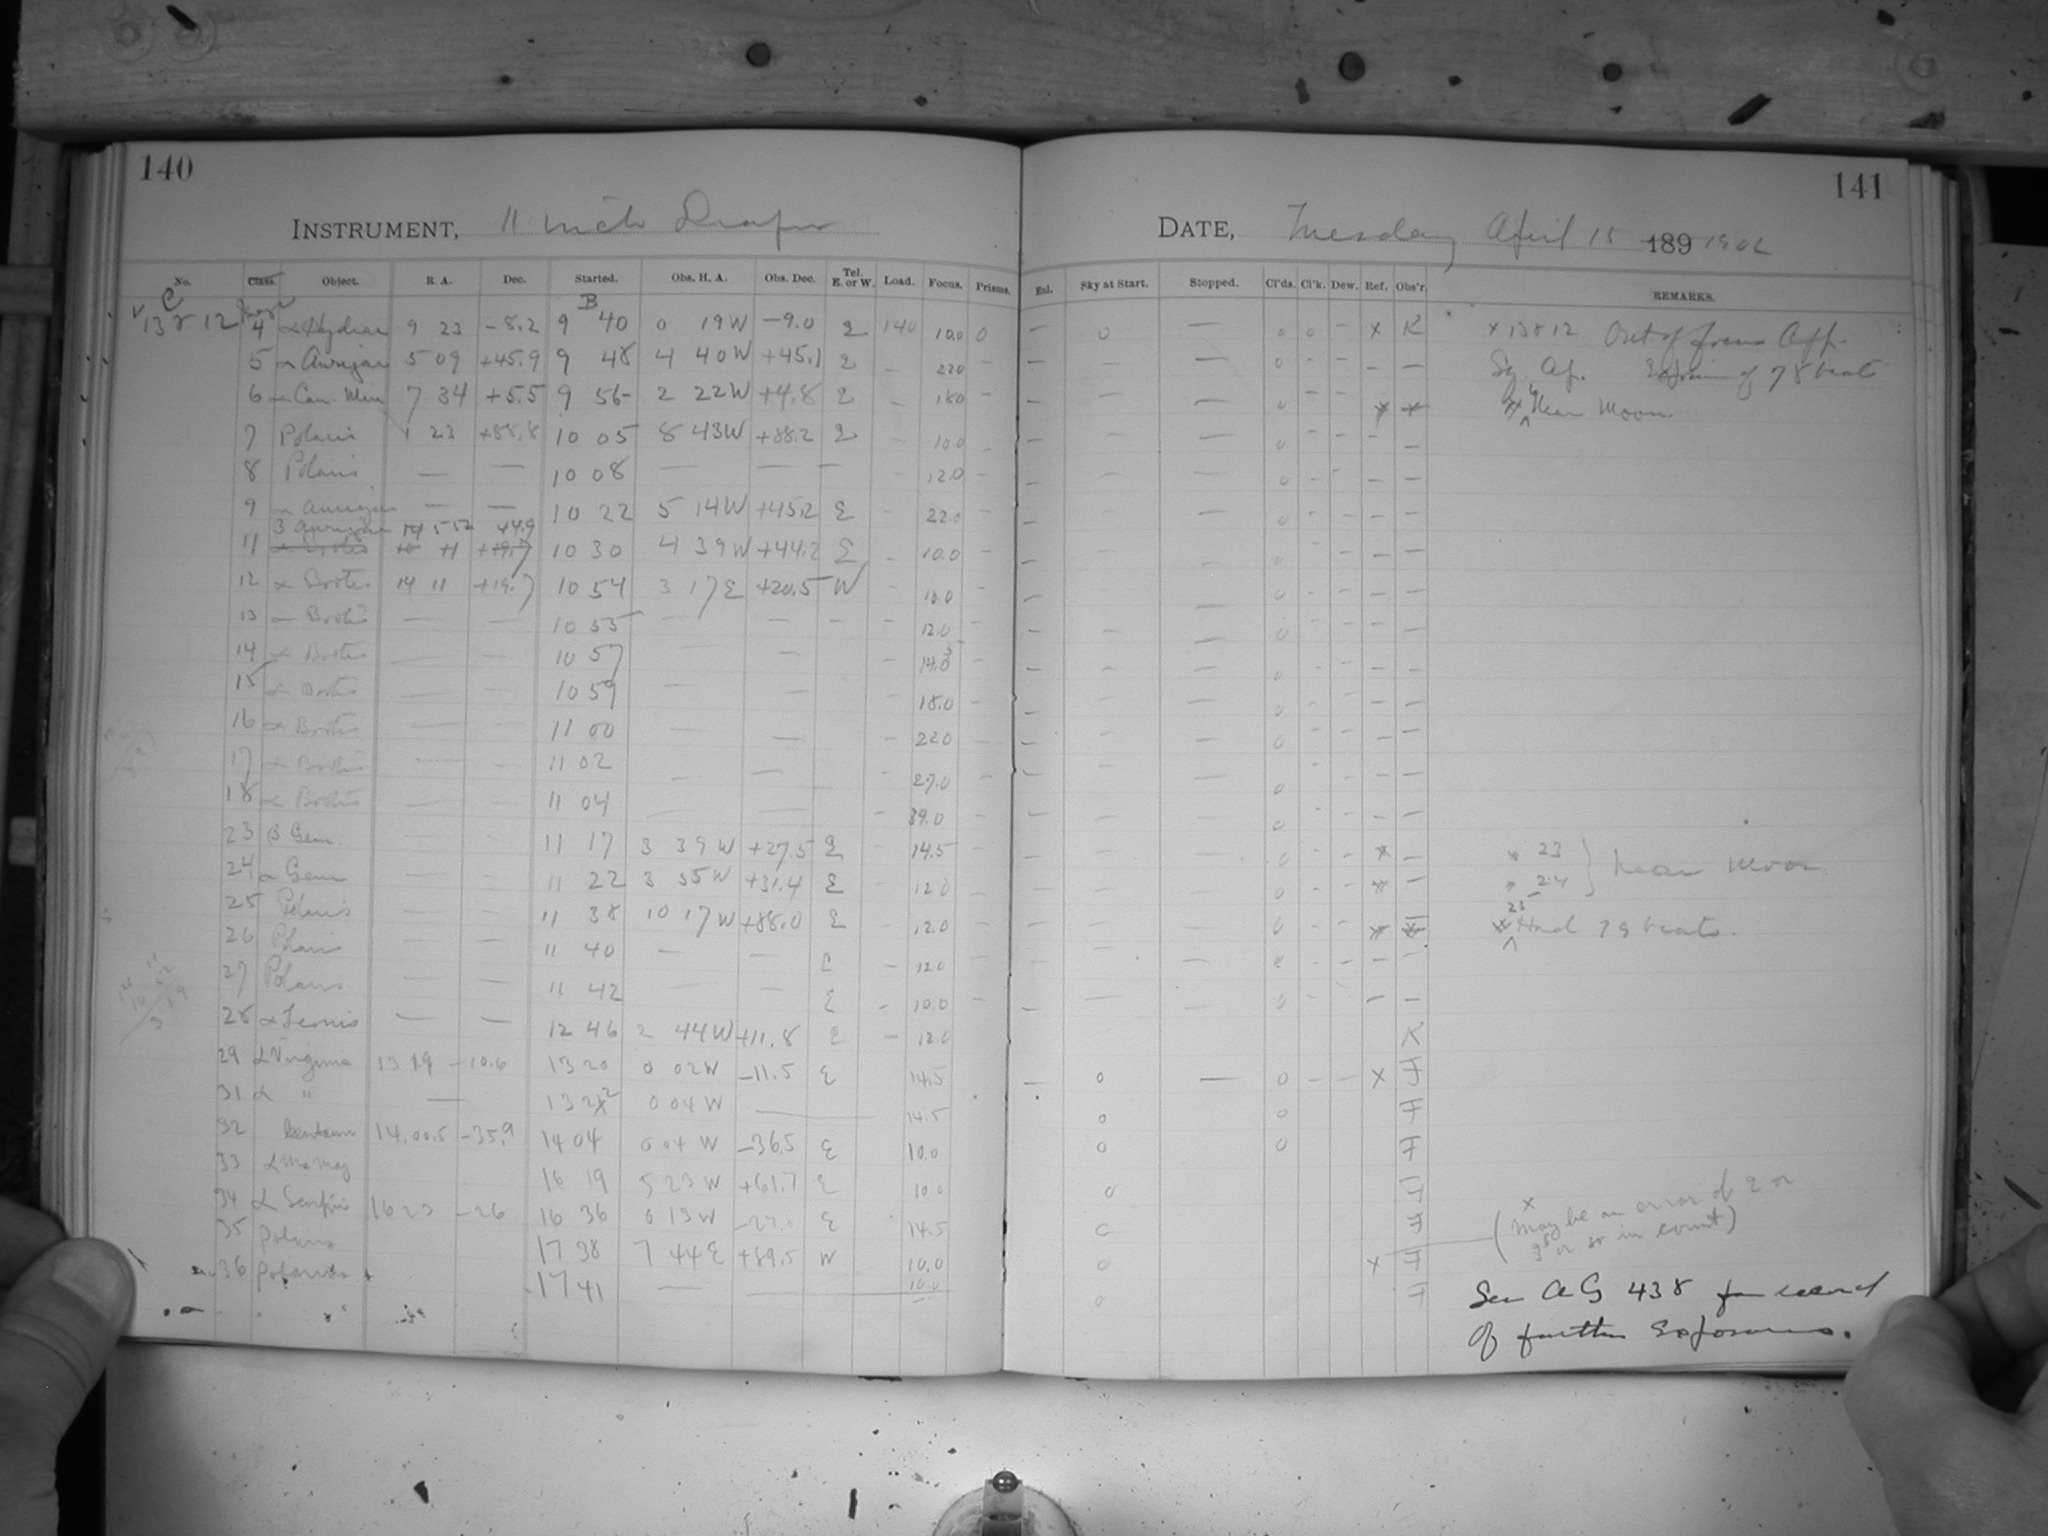 140
141
INSTRUMENT, 11 inch Draper
DATE, Tuesday April 15 189 1902
No. Class. Object. R. A. Dec. Started. Obs. H. A. Obs. Dec. Tel. E. or W. Load. Focus. Prisms. Enl. Sky at Start. Stopped. Cl'ds. Cl'k. Dew. Ref. Obs'r. REMARKS.
C B
13812 4 α Hydrae 9 23 -8.2 9 40 0 19W -9.0 E 140 10.0 0 — 0 — 0 0 — x K x 13812 Out of focus App.
5 α Aurigae 5 09 +45.9 9 48 4 40W +45.1 E — 22.0 — Exposures of 78 beats
6 α Can. Min 7 34 +5.5 9 56 2 22W +4.8 E — 18.0 Near Moon
7 Polaris 1 23 +88.8 10 05 8 43W +88.2 E — 10.0 —
8 Polaris — — 10 08 — — — — 12.0 —
9 α Aurigae — — 10 22 5 14W +45.2 E — 22.0 —
β Aurigae 5 52 44.9
11 α Bootis 14 11 +19.7 10 30 4 39W +44.2 E — 10.0 —
12 α Bootis 14 11 +19.7 10 54 3 17E +20.5 W — 10.0 —
13 α Bootis — — 10 55 — — — — 12.0
14 α Bootis — — 10 57 — — — 14.5 —
15 α Bootis — — 10 59 — — 18.0 —
16 α Bootis — — 11 00 — — 22.0 —
17 α Bootis — — 11 02 — — — 27.0 —
18 α Bootis — — 11 04 — — — 39.0 —
23 β Gem. — — 11 17 3 39W +27.5 E 14.5 — x — x 23
24 α Gem — — 11 22 3 35W +31.4 E 12.0 — x — x 24 } near Moon
25 Polaris — — 11 38 10 17W +88.0 E 12.0 — 25 Had 79 beats.
26 Polaris — — 11 40 — — E — 12.0 —
27 Polaris — — 11 42 — — E — 10.0 —
28 α Leonis — — 12 46 2 44W +11.8 E — 12.0 K
29 α Virginis 13 19 -10.6 13 20 0 02W -11.5 E 14.5 — 0 — 0 — — x F
31 α " — 13 22 0 04W — 14.5 0 0 F
32 Centauri 14.00.5 -35.9 14 04 0 04W -36.5 E 10.0 0 0 F
33 α Urs Maj 16 19 5 23W +61.7 E 10.0 0 F
34 α Scorpii 16 23 -26 16 36 0 13W -27.0 E 14.5 F
35 Polaris 17 38 7 44E +89.5 W 10.0 0 x F
x
(may be an error of 2 or
3s or so in count)
36 Polaris 17 41 — — 10.0 0 F
See AG 438 for record
of further Exposures.